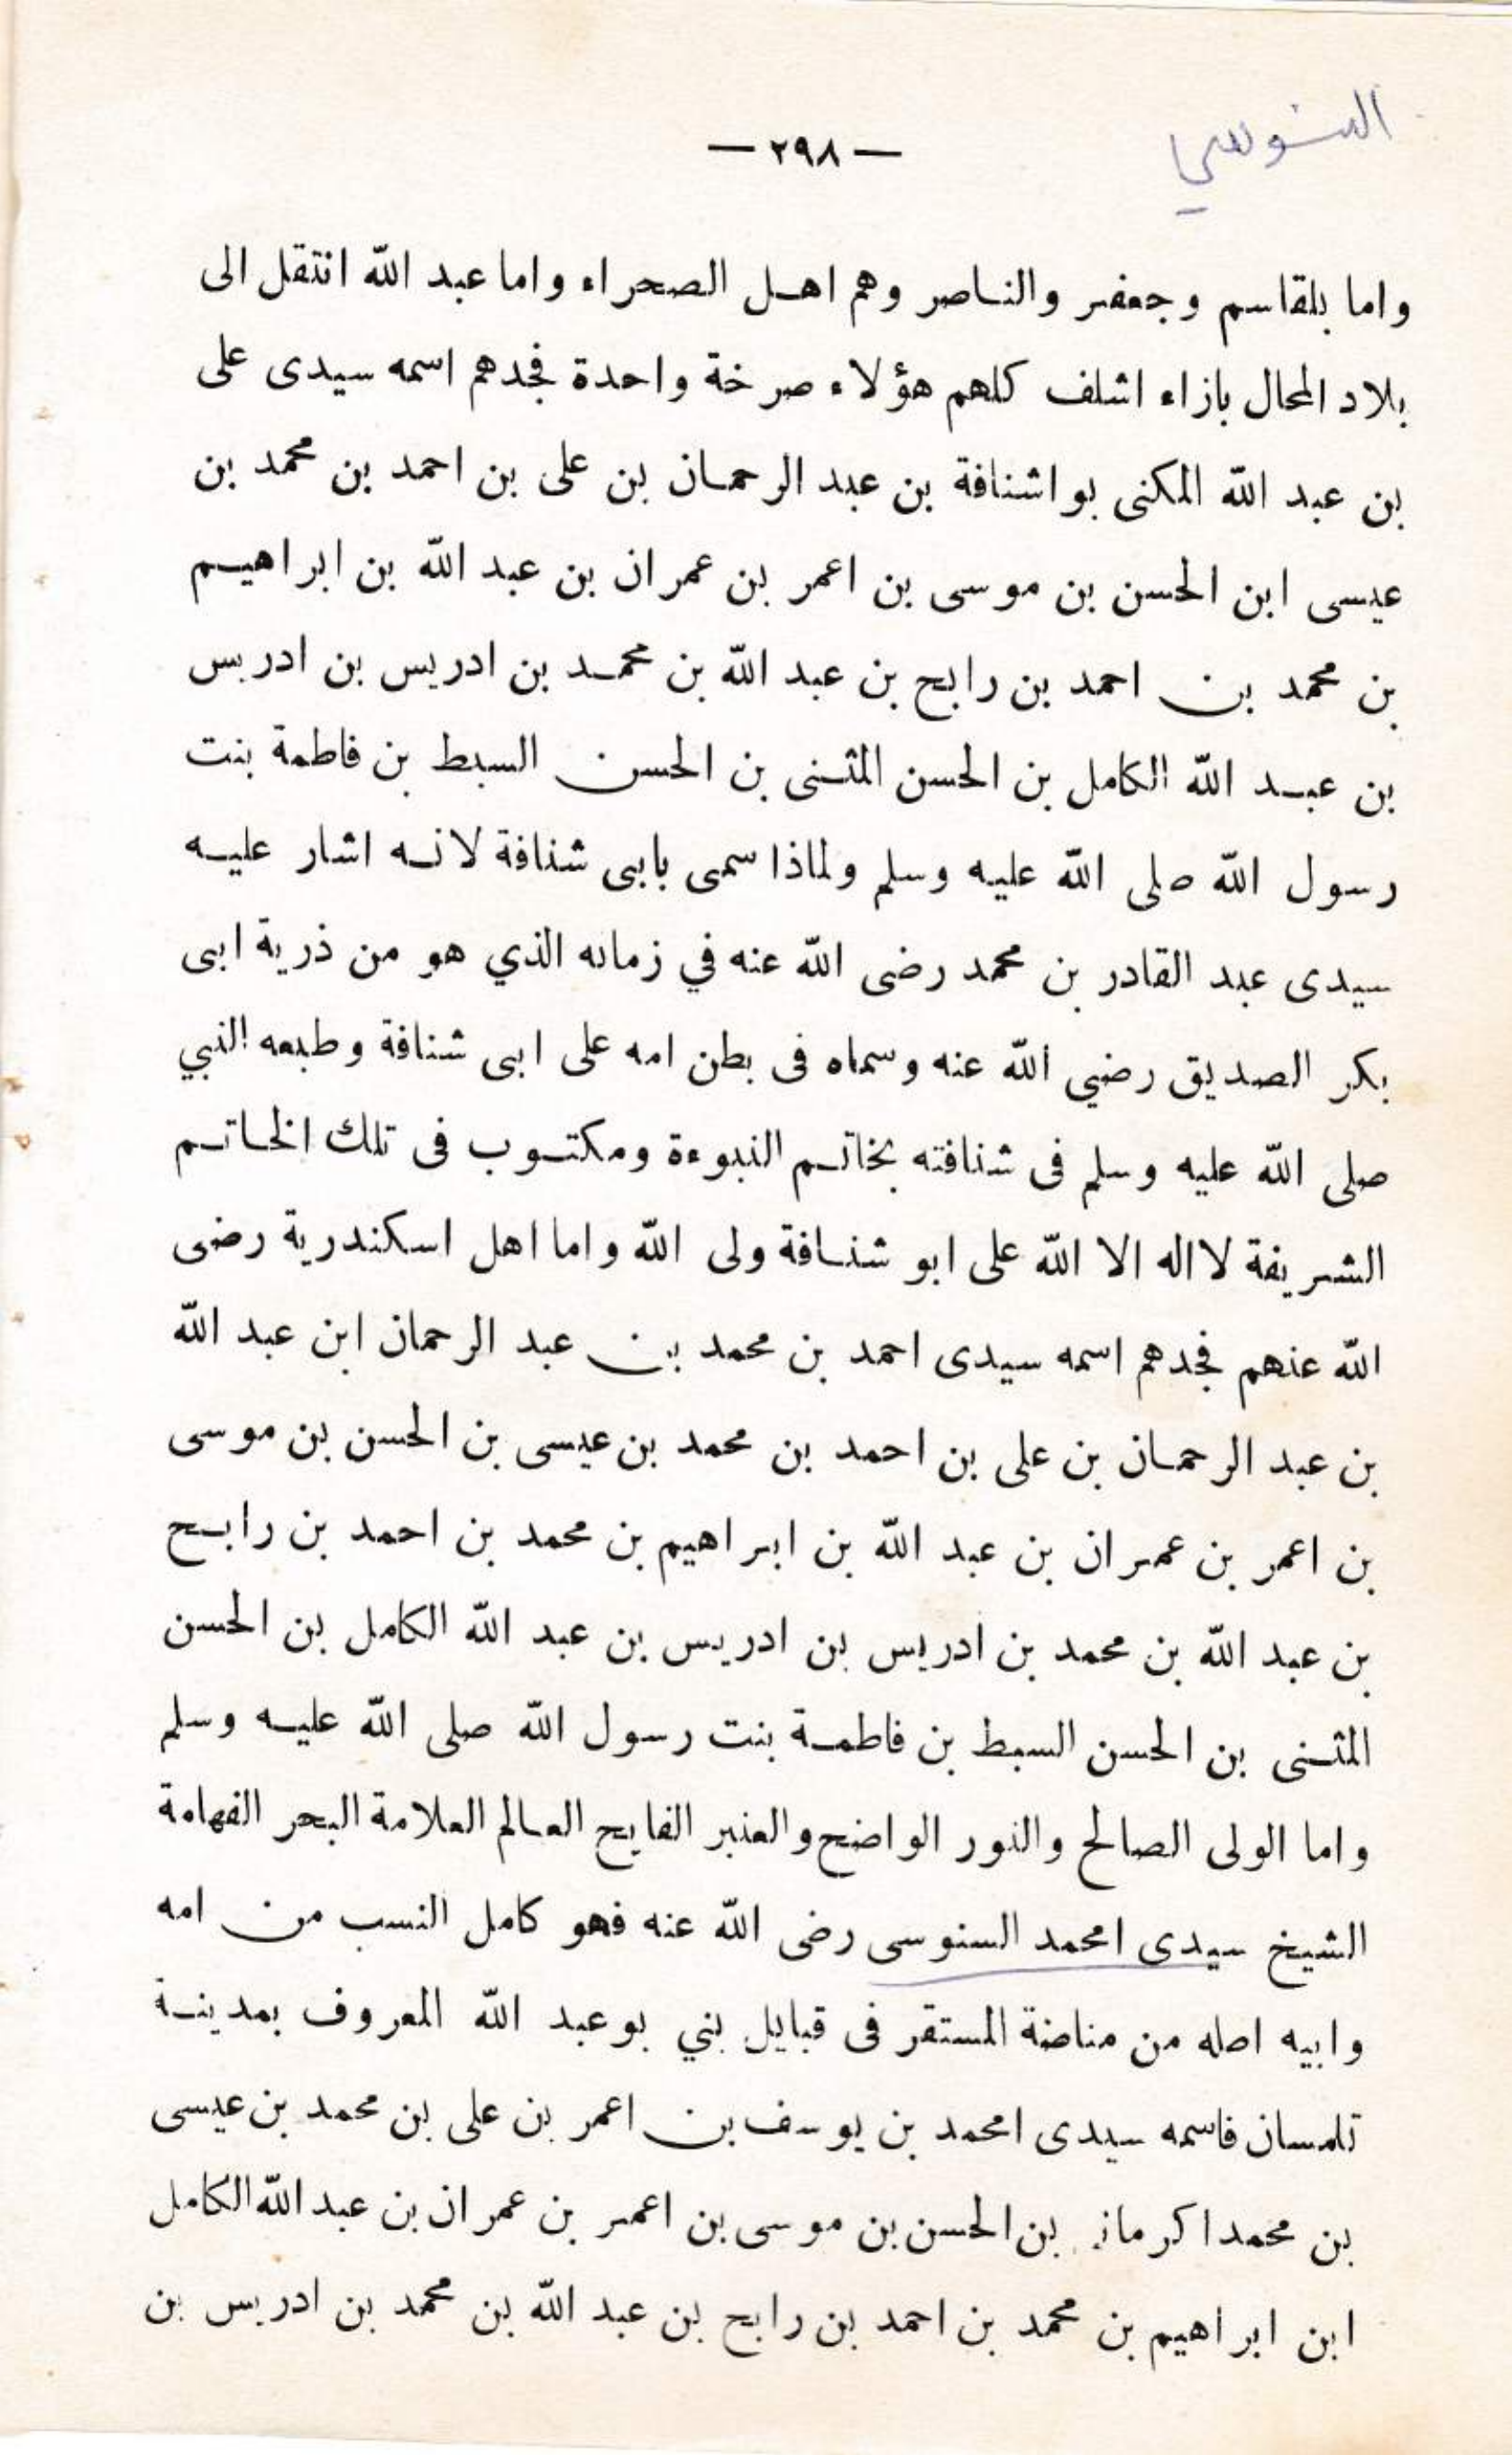 السنوسي
— ٢٩٨ —
واما بلقاسم وجعفر والناصر وهم اهل الصحراء واما عبد الله انتقل الى
بلاد المحال بازاء اشلف كلهم هؤلاء صرخة واحدة فجدهم اسمه سيدى على
بن عبد الله المكنى بواشنافة بن عبد الرحمان بن على بن احمد بن محمد بن
عيسى ابن الحسن بن موسى بن اعمر بن عمران بن عبد الله بن ابراهيم
بن محمد بن احمد بن رابح بن عبد الله بن محمد بن ادريس بن ادريس
بن عبد الله الكامل بن الحسن المثنى بن الحسن السبط بن فاطمة بنت
رسول الله صلى الله عليه وسلم ولماذا سمى بابى شنافة لانه اشار عليه
سيدى عبد القادر بن محمد رضى الله عنه في زمانه الذي هو من ذرية ابى
بكر الصديق رضي الله عنه وسماه فى بطن امه على ابى شنافة وطبعه النبي
صلى الله عليه وسلم فى شنافته بخاتم النبوءة ومكتوب فى تلك الخاتم
الشريفة لااله الا الله على ابو شنافة ولى الله واما اهل اسكندرية رضى
الله عنهم فجدهم اسمه سيدى احمد بن محمد بن عبد الرحمان ابن عبد الله
بن عبد الرحمان بن على بن احمد بن محمد بن عيسى بن الحسن بن موسى
بن اعمر بن عمران بن عبد الله بن ابراهيم بن محمد بن احمد بن رابح
بن عبد الله بن محمد بن ادريس بن ادريس بن عبد الله الكامل بن الحسن
المثنى بن الحسن السبط بن فاطمة بنت رسول الله صلى الله عليه وسلم
واما الولى الصالح والنور الواضح والعنبر الفايح العالم العلامة البحر الفهامة
الشيخ سيدى امحمد السنوسى رضى الله عنه فهو كامل النسب من امه
وابيه اصله من مناصة المستقر فى قبايل بني بوعبد الله المعروف بمدينة
تلمسان فاسمه سيدى امحمد بن يوسف بن اعمر بن على بن محمد بن عيسى
بن محمد اكرمان بن الحسن بن موسى بن اعمر بن عمران بن عبد الله الكامل
ابن ابراهيم بن محمد بن احمد بن رابح بن عبد الله بن محمد بن ادريس بن